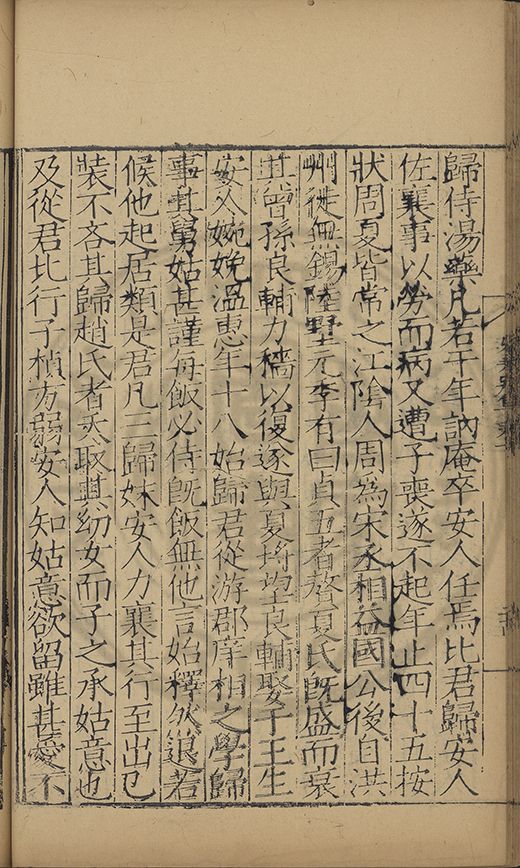 歸侍湯藥凡若干年訥庵卒安人任焉比君歸安人
佐襄事以勞而病又遭子喪遂不起年止四十五按
狀周夏皆常之江陰人周為宋丞相益國公後自洪
州徙無錫陸野至元季有曰貞五者贅夏氏既盛而衰
其曾孫良輔力穡以復遂與夏埒望良輔娶于王生
安人婉娩溫惠年十八始歸君從游郡庠相之學歸
事其舅姑甚謹每飯必侍既飯無他言始釋然退若
候他起居類是君凡三歸妹安人力襄其行至出己
裝不吝其歸趙氏者太取其幼女而子之承姑意也
及從君比行子楨方弱安人知姑意欲留雖甚愛不